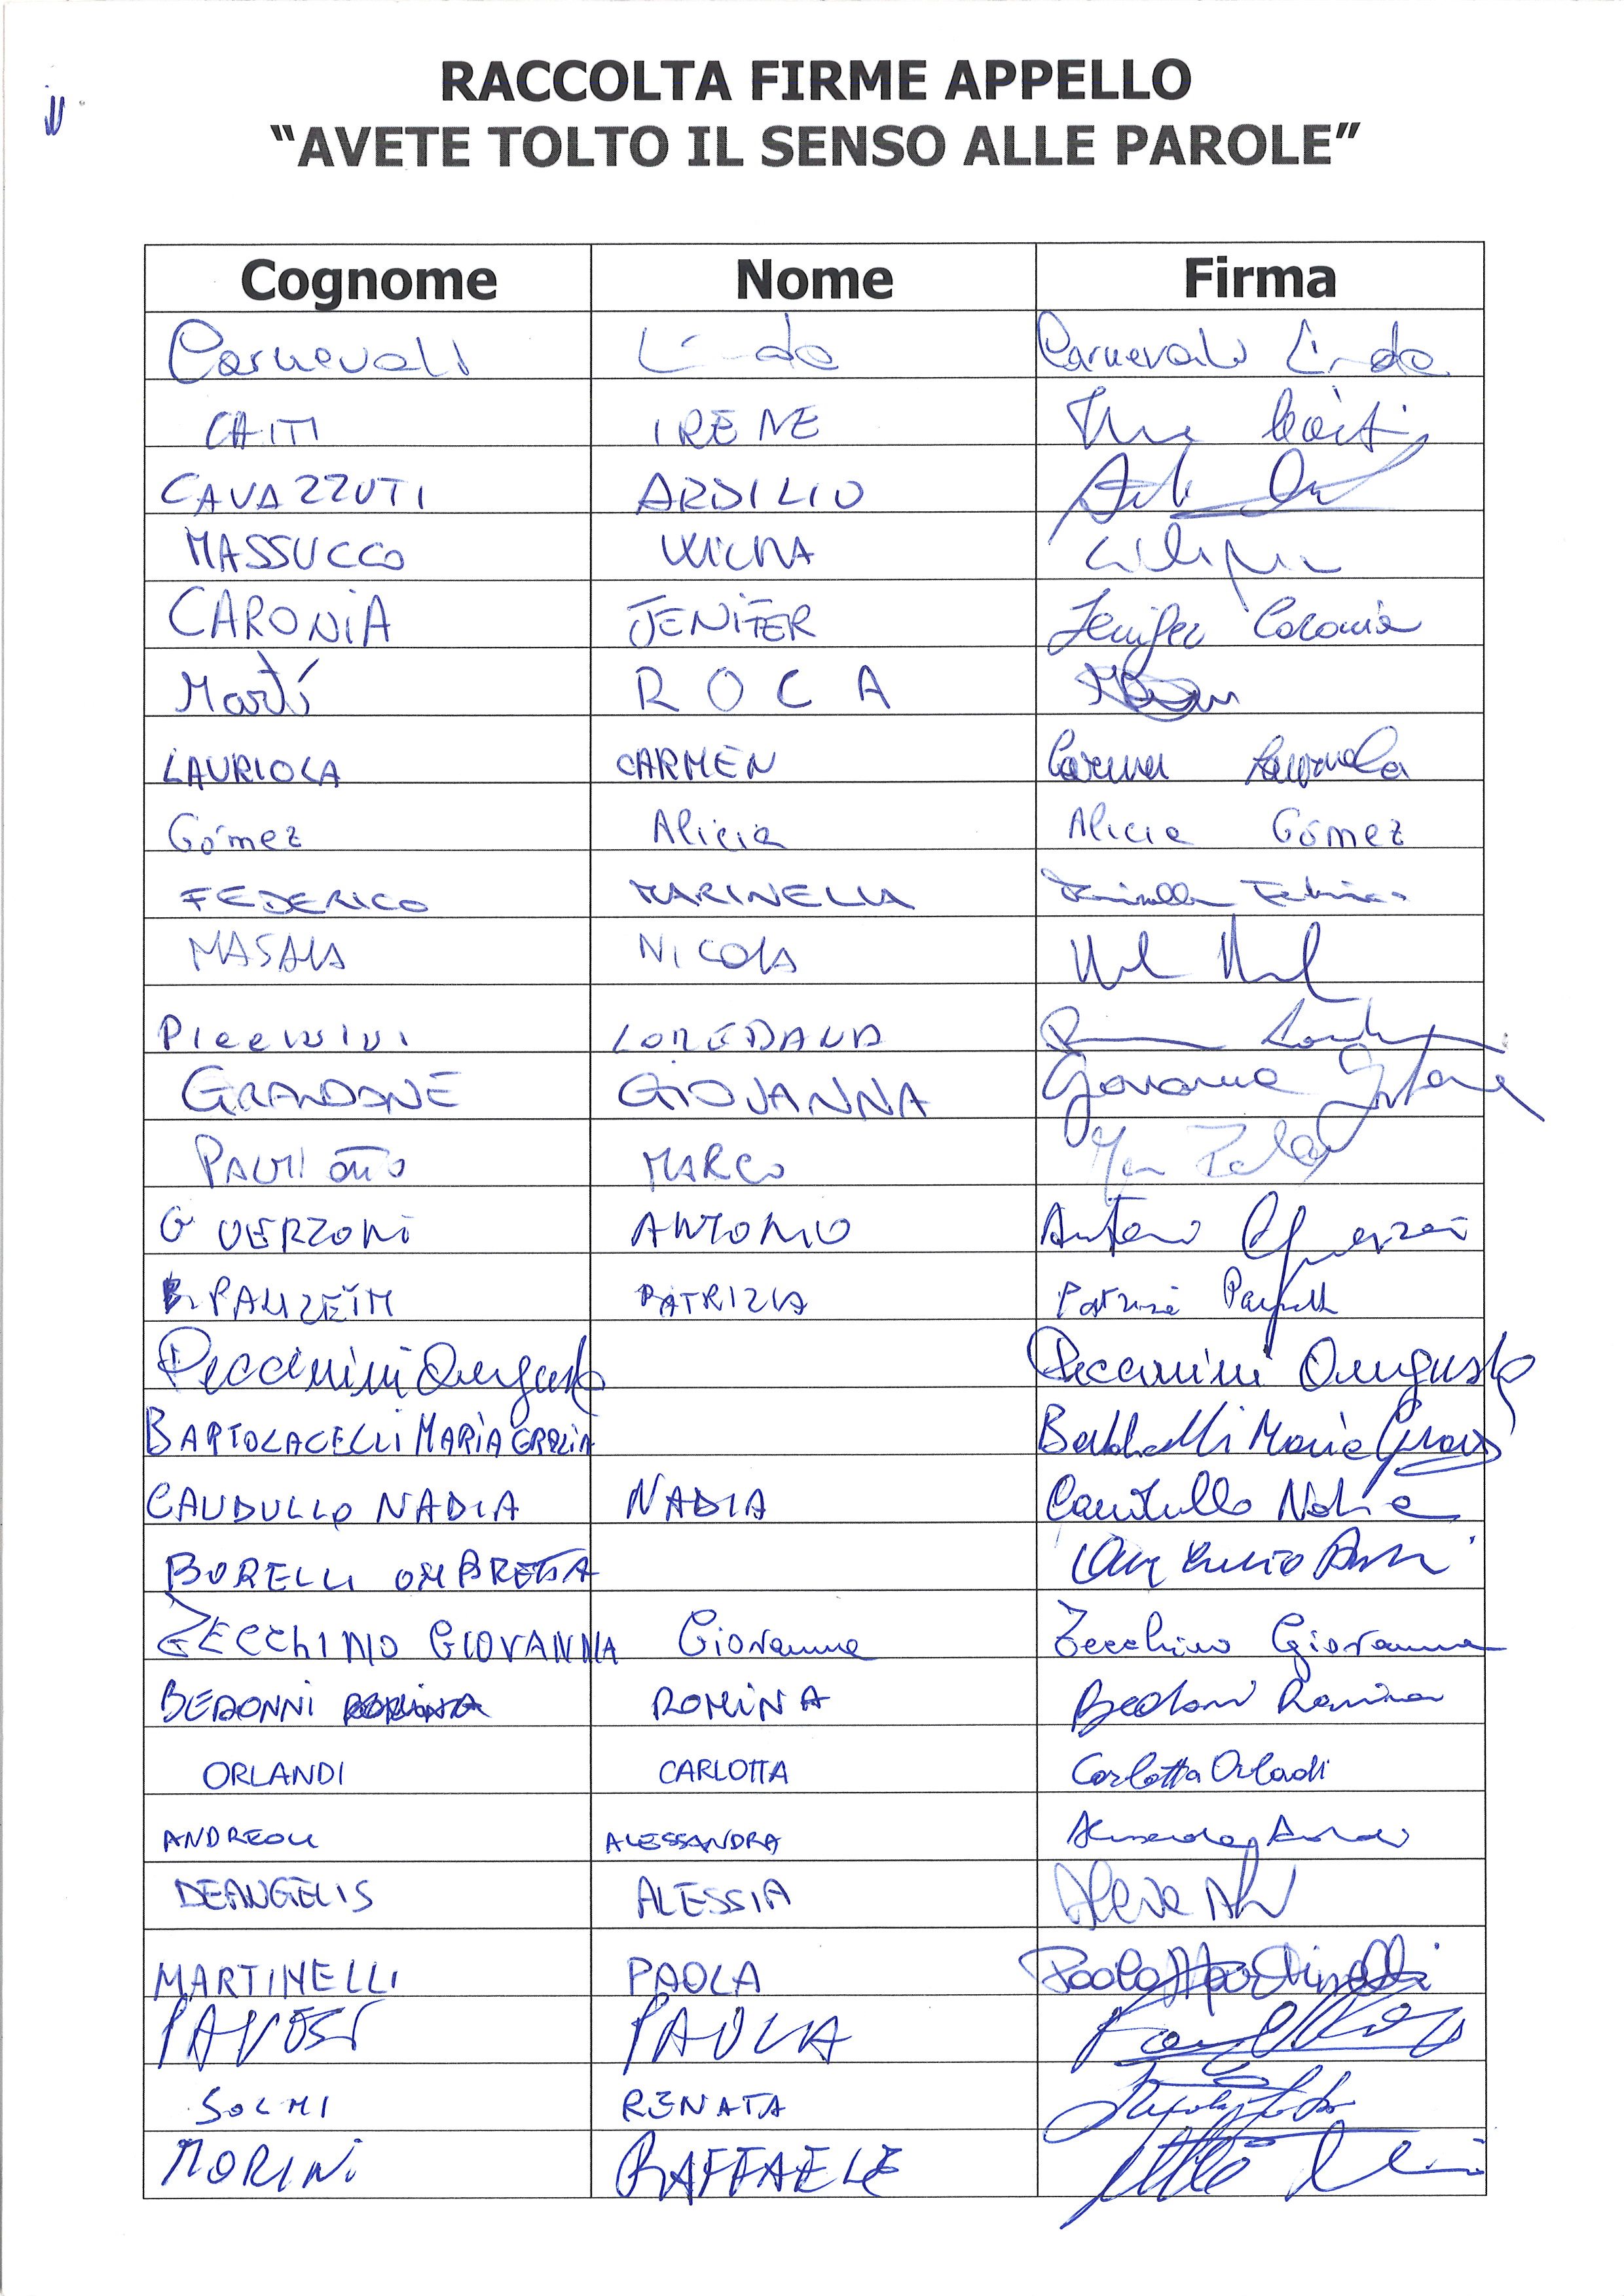 RACCOLTA FIRME APPELLO
“AVETE TOLTO IL SENSO ALLE PAROLE”
Cognome Nome Firma
Carnevali Linda Carnevali Linda
CAITI IRENE Irene Caiti
CAVAZZUTI ARDILIO
MASSUCCO WILMA
CARONIA JENIFER Jenifer Caronia
Martí ROCA
LAURIOLA CARMEN Carmen Lauriola
Gómez Alicia Alicia Gómez
FEDERICO MARINELLA Marinella Federico
MASALA NICOLA
PICCININI LOREDANA
GRANDONE GIOVANNA Giovanna
MARCO
GUERZONI ANTONIO Antonio Guerzoni
PATRIZIA Patrizia
Peccinini Augusto Peccinini Augusto
BARTOLACELLI MARIA GRAZIA Maria Grazia
CAUDULLO NADIA NADIA Caudullo Nadia
BORELLI OMBRETTA
ZECCHINO GIOVANNA Giovanna Zecchino Giovanna
BEDONNI ROMINA Bedonni Romina
ORLANDI CARLOTTA Carlotta Orlandi
ANDREOLI ALESSANDRA
DEANGELIS ALESSIA
MARTINELLI PAOLA Paola Martinelli
PAVESI PAOLA
SOLMI RENATA
MORINI RAFFAELE